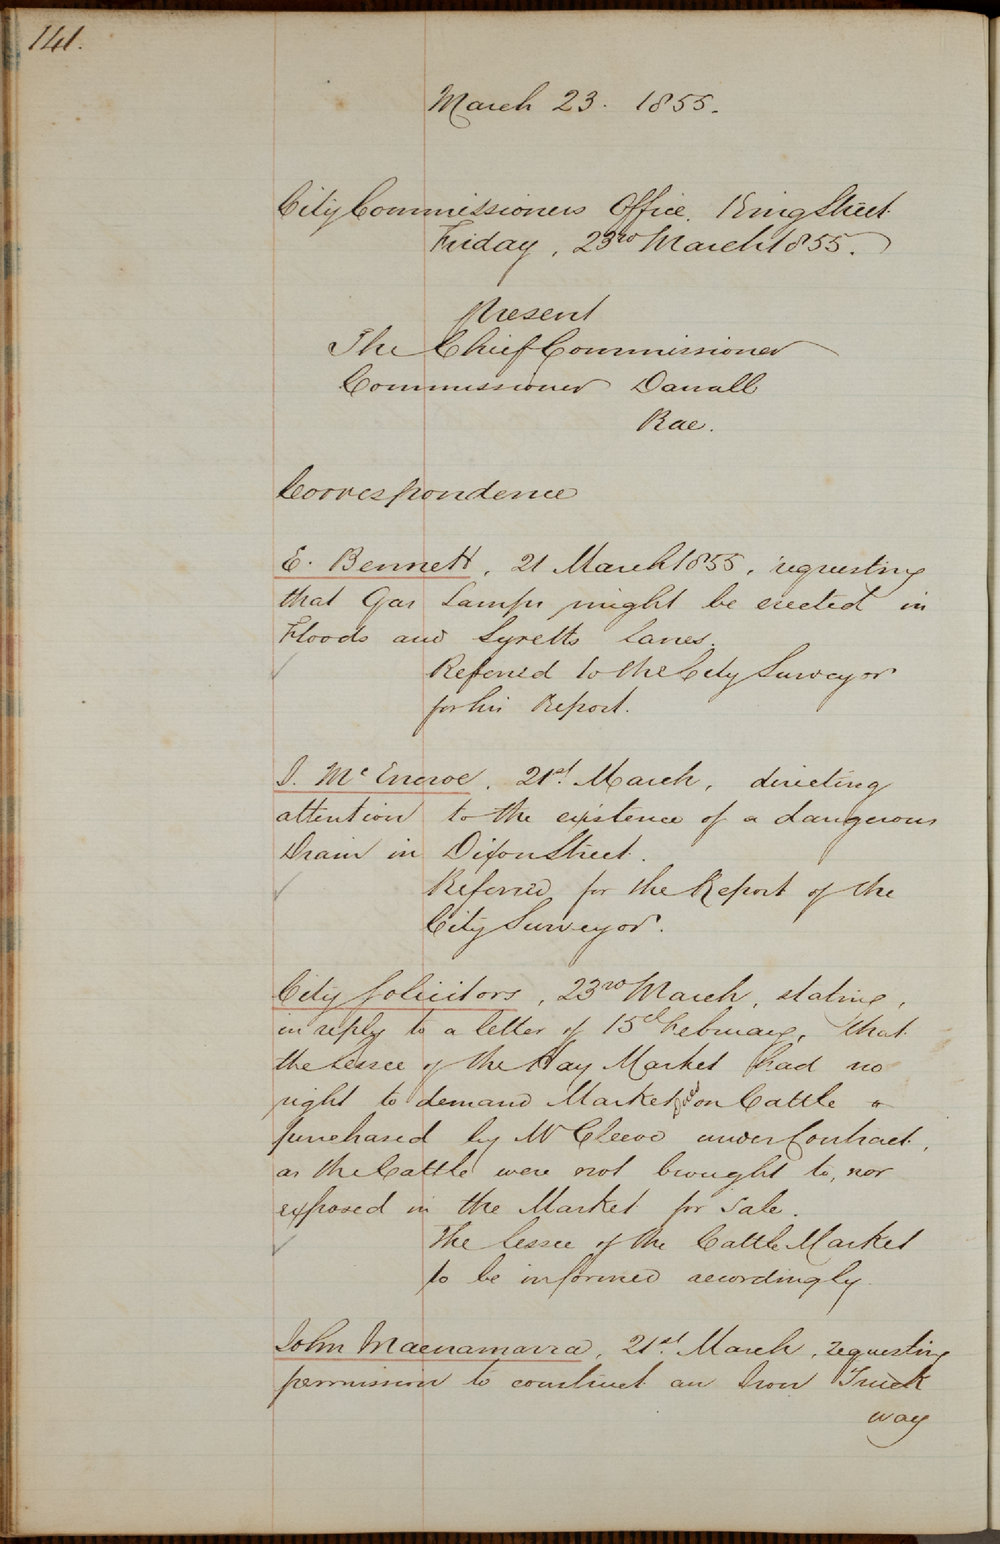 141.
March 23. 1855.
City Commissioners Office. King Street
Friday, 23rd March 1855.
Present
The Chief Commissioner
Commissioner Darvall
Rae.
Correspondence
E. Bennett, 21 March 1855, requesting
that Gas Lamps might be erected in
Floods and Lyretts Lanes.
Referred to the City Surveyor
for his Report.
J. McEncroe, 21st March, directing
attention to the existence of a dangerous
Drain in Dixon Street.
Referred for the Report of the
City Surveyor.
City Solicitors, 23rd March, stating,
in reply to a letter of 15th February, that
the Lessee of the Hay Market had no
right to demand Market fees on Cattle
purchased by Mr Cleeve under Contract,
as the Cattle were not brought to, nor
exposed in the Market for Sale.
The Lessee of the Cattle Market
to be informed accordingly.
John Macnamarra, 21st March, requesting
permission to construct an Iron Truck
way